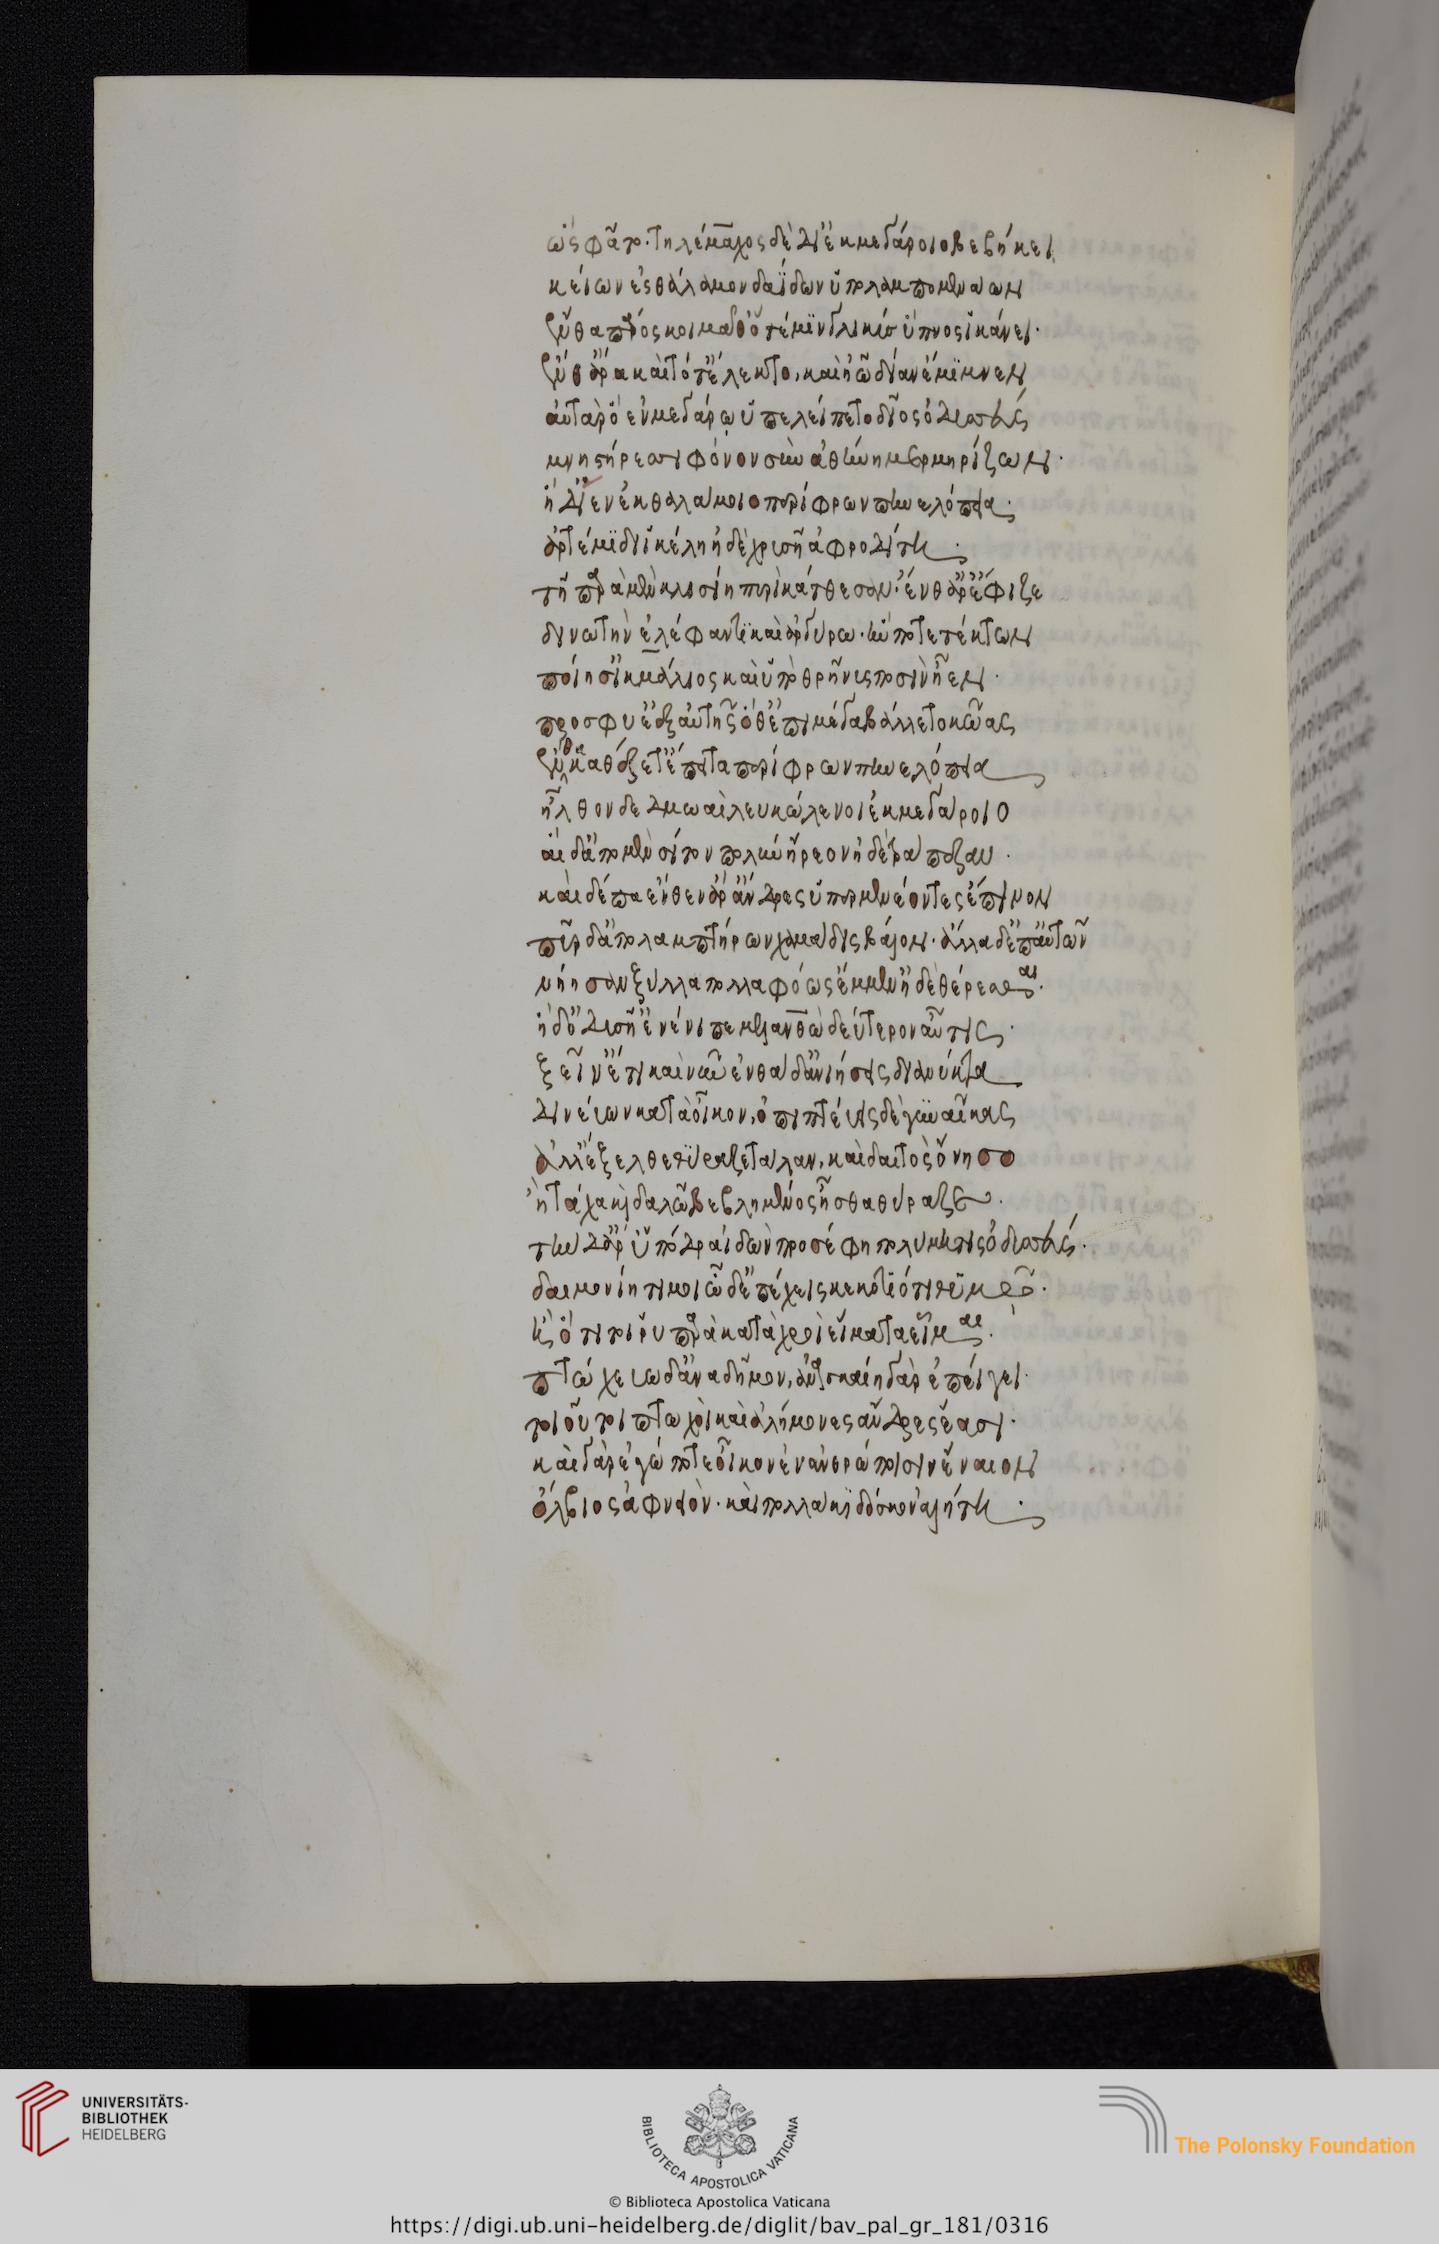 ὡς φάτο· τηλέμαχος δὲ δι' ἐκ μεγάροιο βεβήκει
κείων ἐς θάλαμον δαΐδων ὕπο λαμπομενάων
ἔνθα πάρος κοιμᾶθ' ὅτέ μιν γλυκὺς ὕπνος ἱκάνει·
ἔνθ' ἄρα καὶ τότ' ἔλεκτο, καὶ ἠῶ δῖαν ἔμιμνεν
αὐτὰρ ὁ ἐν μεγάρω ὑπελείπετο δῖος ὀδυσσεύς
μνηστήρεσσι φόνον σὺν ἀθήνη μερμηρίζων·
ἡ δ' ἴεν ἐκ θαλάμοιο περίφρων πηνελόπεια·
ἀρτέμιδι ἰκέλη ἠδὲ χρυσῆ ἀφροδίτη·
τῆ παρὰ μὲν κλισίην πυρὶ κάτθεσαν· ἔνθ' ἄρ' ἔφιζε
δινωτὴν ἐλέφαντι καὶ ἀργύρω· ἥν ποτε τέκτων
ποίησ' ἰκμάλιος καὶ ὑπὸ θρῆνυν ποσὶν ἧκεν·
προσφυέ' ἐξ αὐτῆς ὅθ' ἐπὶ μέγα βάλλετο κῶας
ἔνθα καθέζετ' ἔπειτα περίφρων πηνελόπεια
ἦλθον δε δμωαὶ λευκώλενοι ἐκ μεγάροιο
αἱ δ' ἀπο μὲν σῖτον πολὺν ἥρεον ἠδὲ τραπέζας·
καὶ δέπα ἔνθεν ἄρ' ἄνδρες ὑπερμενέοντες ἔπινον
πῦρ δ' ἀπο λαμπτήρων χαμάδις βάλον· ἄλλα δ' ἐπ' αὐτῶν
νήησαν ξύλα πολλὰ φόως ἔμεν ἠδὲ θέρεσθαι·
ἡ δ' ὀδυσῆ' ἐνένιπε μελανθὼ δεύτερον αὖτις·
ξεῖν' ἔτι καὶ νῦν ἐνθάδ' ἀνιήσεις διὰ νύκτα
δινεύων κατὰ οἶκον, ὀπιπτεύεις δὲ γυναῖκας
ἀλλ' ἔξελθε θύραζε τάλαν, καὶ δαιτὸς ὄνησο
ἢ τάχα καὶ δαλῶ βεβλημένος εἶσθα θύραζε·
τὴν δ' ἄρ' ὑπόδρα ἰδὼν προσέφη πολύμητις ὀδυσσεύς·
δαιμονίη τί μοι ὧδ' ἐπέχεις κεκοτηότι θυμῷ·
ἢ ὅτι ῥυπόω κακὰ δὲ χροῒ εἵματα εἷμαι·
πτωχεύω δ' ἀνὰ δῆμον, ἀναγκαίη γὰρ ἐπείγει·
τοιοῦτοι πτωχοὶ καὶ ἀλήμονες ἄνδρες ἔασι·
καὶ γὰρ ἐγώ ποτε οἶκον ἐν ἀνθρώποισιν ἔναιον
ὄλβιος ἀφνειὸν· καὶ πολλάκι δόσκον ἀλήτη·
UNIVERSITÄTS-
BIBLIOTHEK
HEIDELBERG
BIBLIOTECA APOSTOLICA VATICANA
The Polonsky Foundation
© Biblioteca Apostolica Vaticana
https://digi.ub.uni-heidelberg.de/diglit/bav_pal_gr_181/0316